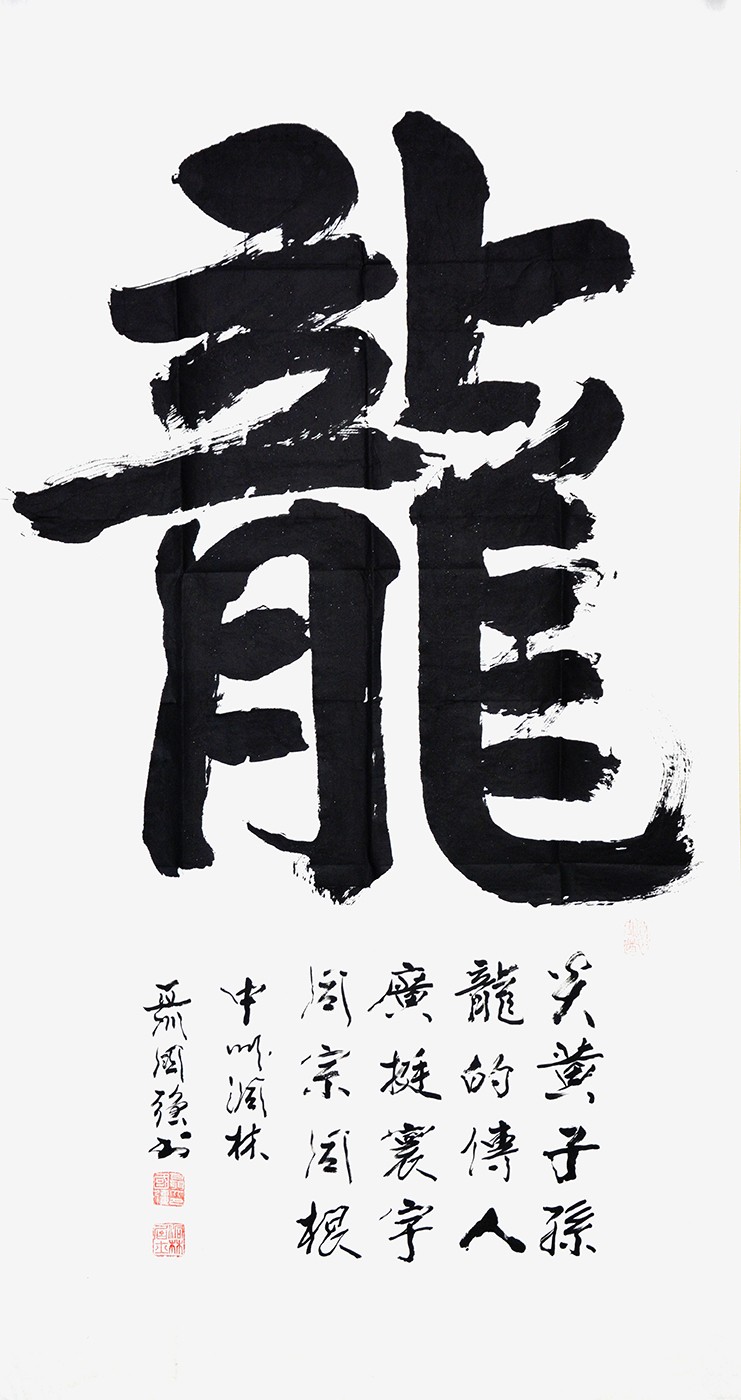 龍
炎黄子孫
龍的傳人
廣挺寰宇
同宗同根
中州澗林
聶國強书